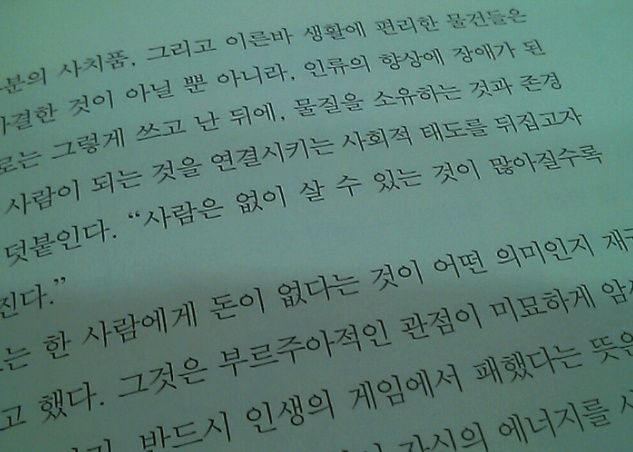 분의 사치품, 그리고 이른바 생활에 편리한 물건들은
가결한 것이 아닐 뿐 아니라, 인류의 향상에 장애가 된
로는 그렇게 쓰고 난 뒤에, 물질을 소유하는 것과 존경
사람이 되는 것을 연결시키는 사회적 태도를 뒤집고자
덧붙인다. “사람은 없이 살 수 있는 것이 많아질수록
진다.”
는 한 사람에게 돈이 없다는 것이 어떤 의미인지 재구
고 했다. 그것은 부르주아적인 관점이 미묘하게 암시
반드시 인생의 게임에서 패했다는 뜻은
자신의 에너지를